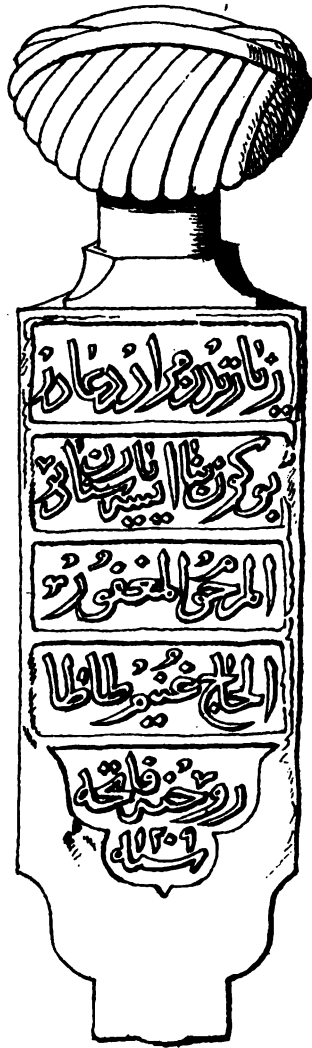 زيارتدن مراد دعادر
بوكون بنا ايسه يارن سنادر
المرحوم المغفور
الحاج
روحنه فاتحه
سنه ١٢٠٩